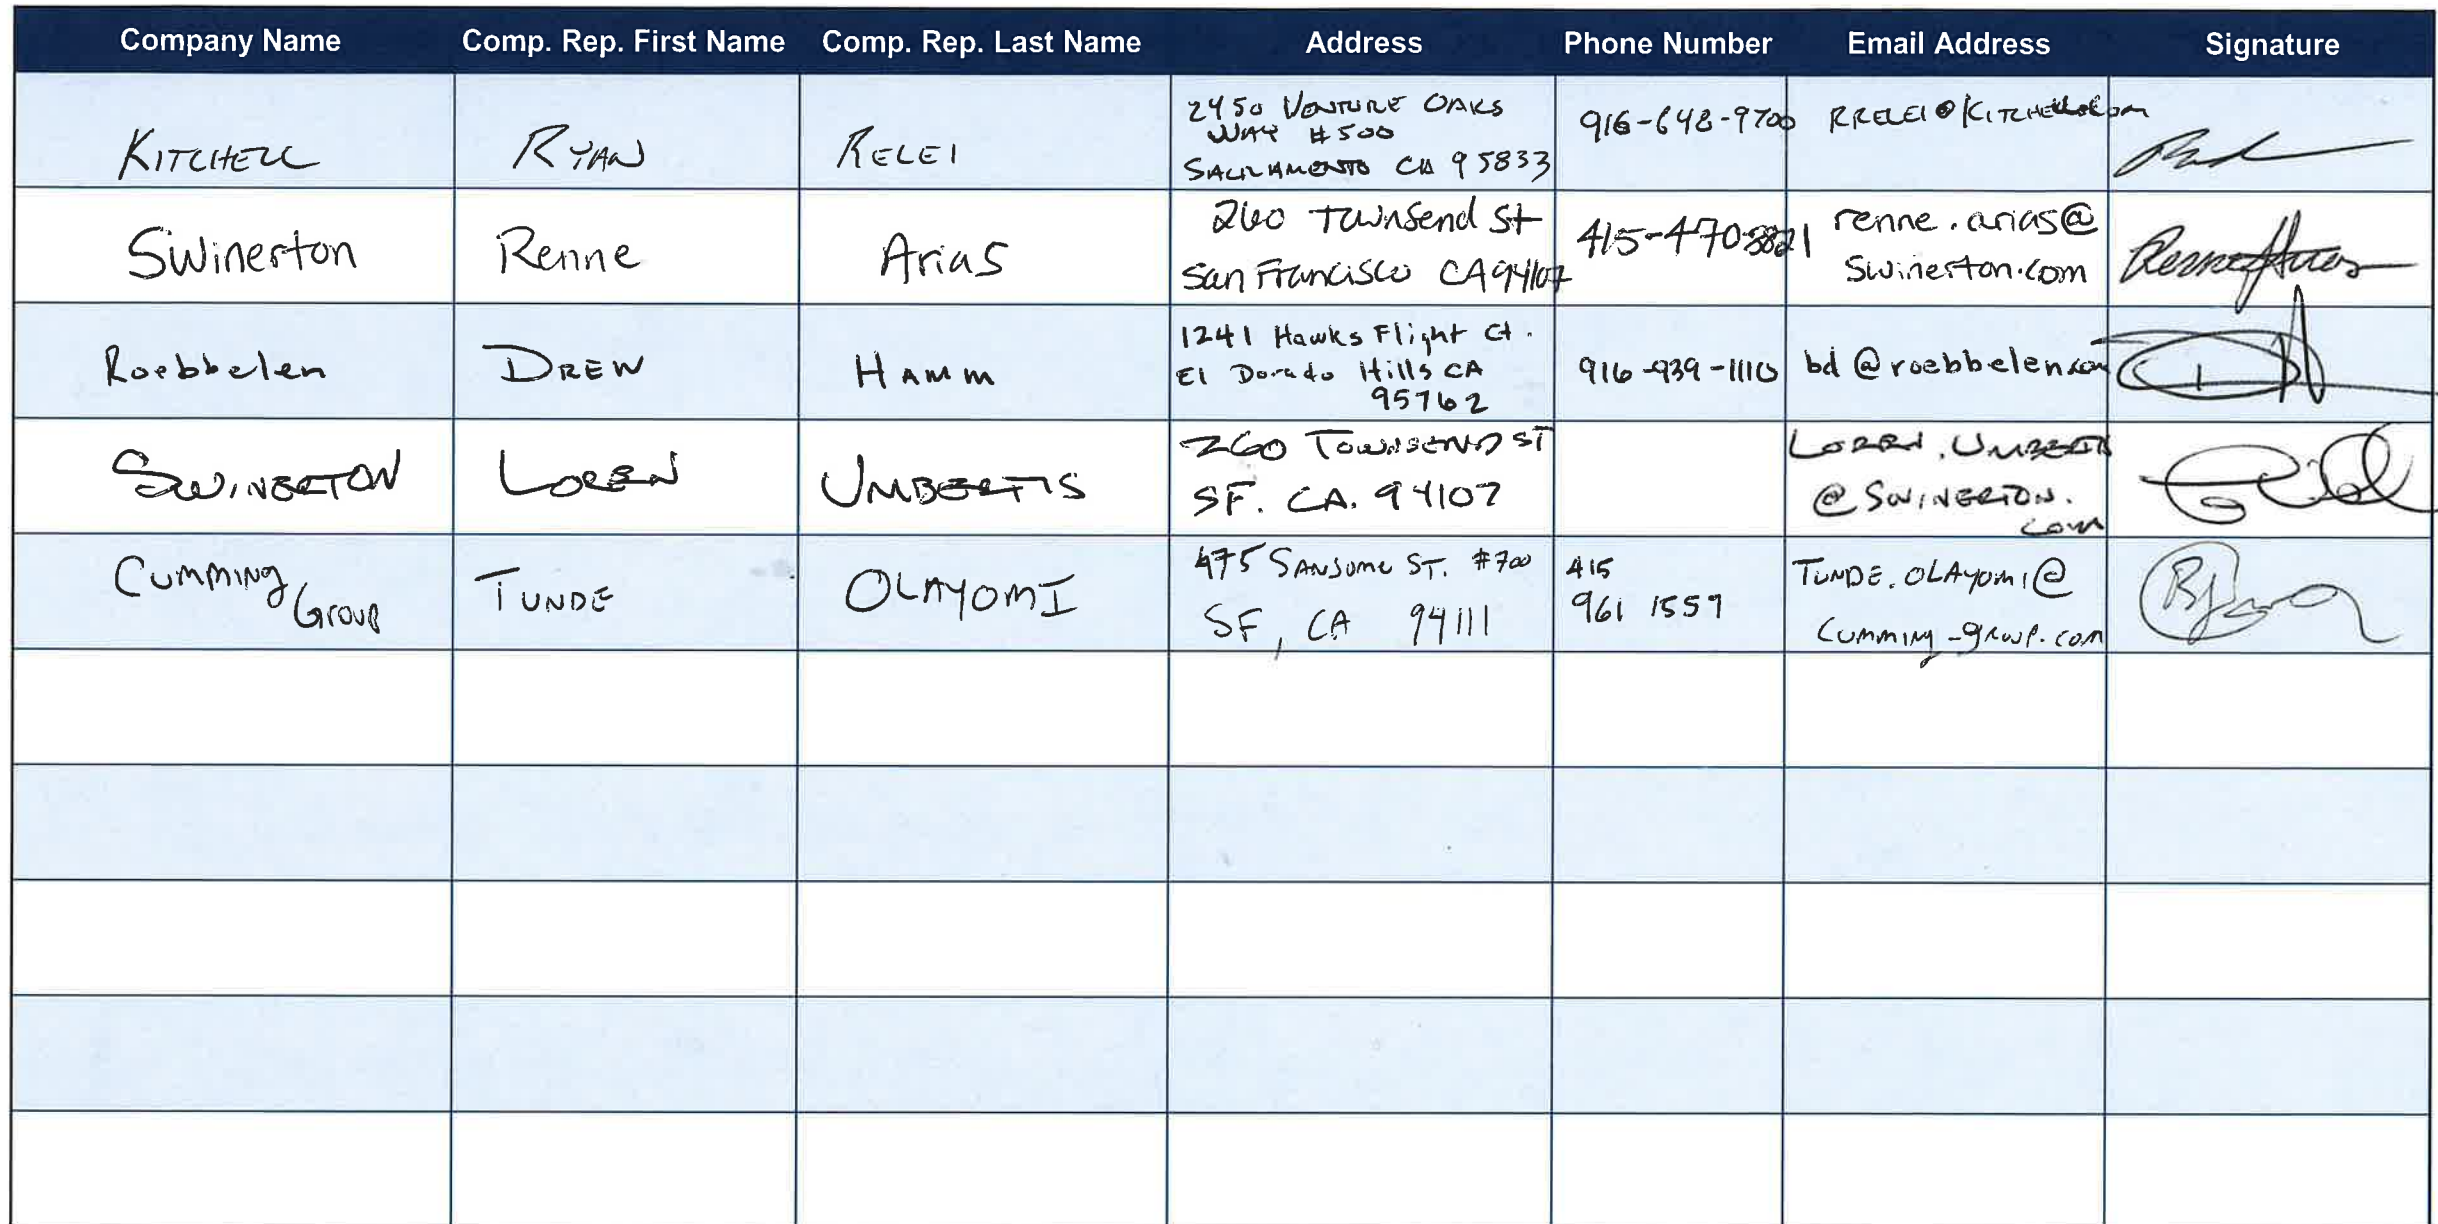 Company Name Comp. Rep. First Name Comp. Rep. Last Name Address Phone Number Email Address Signature
KITCHELL RYAN RELEI 2450 VENTURE OAKS WAY #500 SACRAMENTO CA 95833 916-648-9700 RRELEI@KITCHELL.COM
Swinerton Renne Arias 260 Townsend St San Francisco CA 94107 415-470-3821 renne.arias@swinerton.com
Roebbelen DREW HAMM 1241 Hawks Flight Ct. El Dorado Hills CA 95762 916-939-1110 bd@roebbelen.com
SWINERTON LOREN UMBERTIS 260 TOWNSEND ST SF. CA. 94107 LOREN.UMBERTIS@SWINERTON.com
CUMMING GROUP TUNDE OLAYOMI 475 SANSOME ST. #700 SF, CA 94111 415 961 1559 TUNDE.OLAYOMI@CUMMING-GROUP.COM